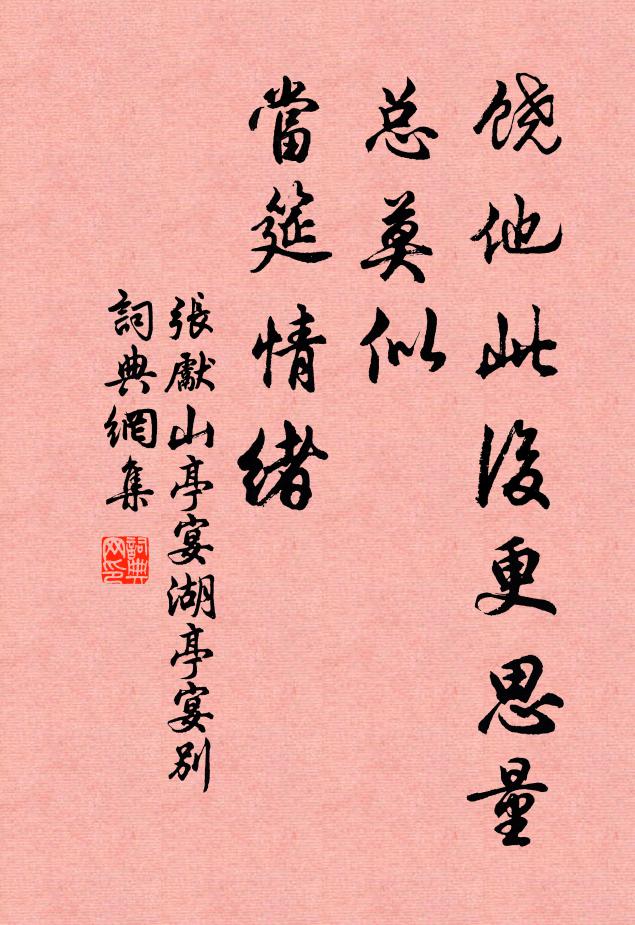 饶他此後更思量
总莫似
當筵情緒
張獻山亭宴湖亭宴别
詞典網集
詞典網印